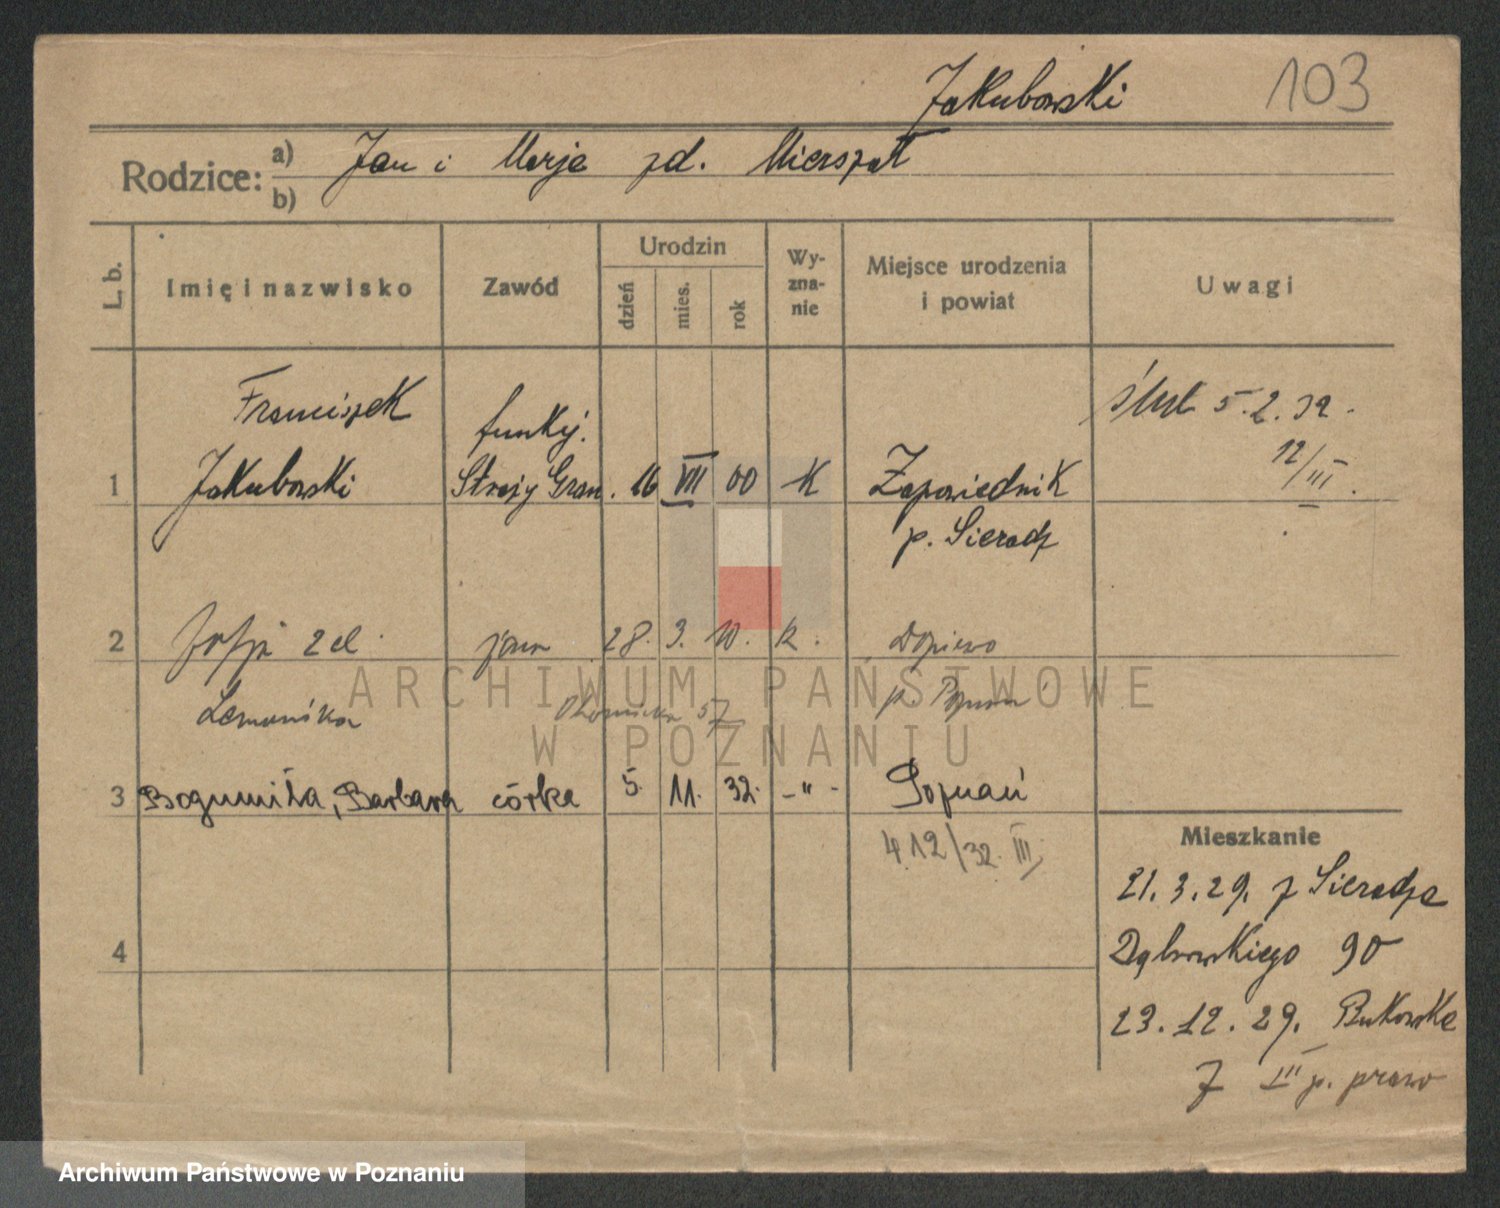 Jakubowski 103
Rodzice: a) Jan i Marja zd. Mierszał
b)
L. b. Imię i nazwisko Zawód Urodzin dzień mies. rok Wy-zna-nie Miejsce urodzenia i powiat Uwagi
Franciszek funkcj. ślub 5.2.32.
1 Jakubowski Straży Gran. 16 VII 00 K Zapowiednik 12/III.
p. Sieradz
2 Zofja 28. 3. 10. K. Dopiewo
p. Poznań
3 Bogumiła, Barbara córka 5. 11. 32. -"- Poznań
412/32. III
Mieszkanie
21.3.29. z Sieradza
4 Dąbrowskiego 90
23.12.29. Bukowska
7 III p. prawo
ARCHIWUM PAŃSTWOWE
W POZNANIU
Archiwum Państwowe w Poznaniu